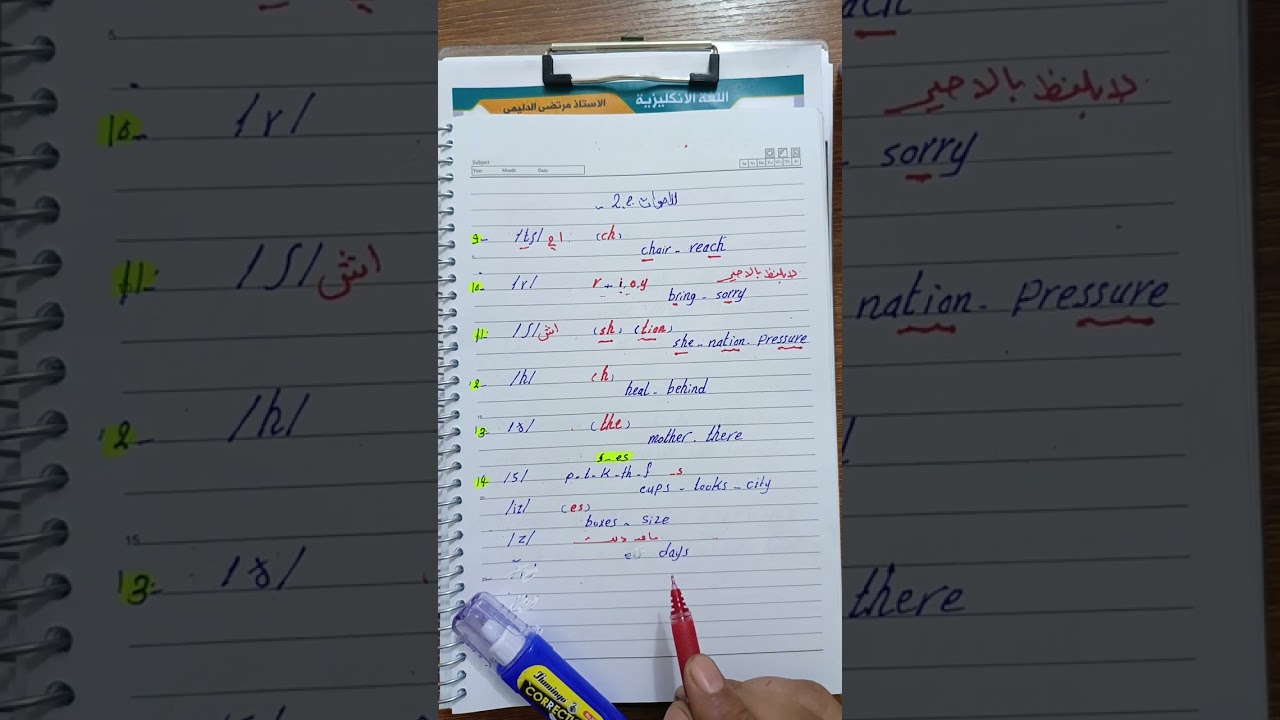 اللغة الانكليزية
الاستاذ مرتضى الدليمي
Subject
Year: Month: Date:
الاصوات ج.2
9- /tʃ/ اچ : (ch)
chair - reach
10- /r/ r + i.o.y لايلفظ بالاخير
bring - sorry
11- /ʃ/ اش (sh) (tion)
she - nation - pressure
12- /h/ (h)
heat - behind
13- /ð/ (the)
mother - there
s - es
14- /s/ p-t-k-th-f -s
cups - looks - city
/iz/ (es)
boxes - size
/z/
days